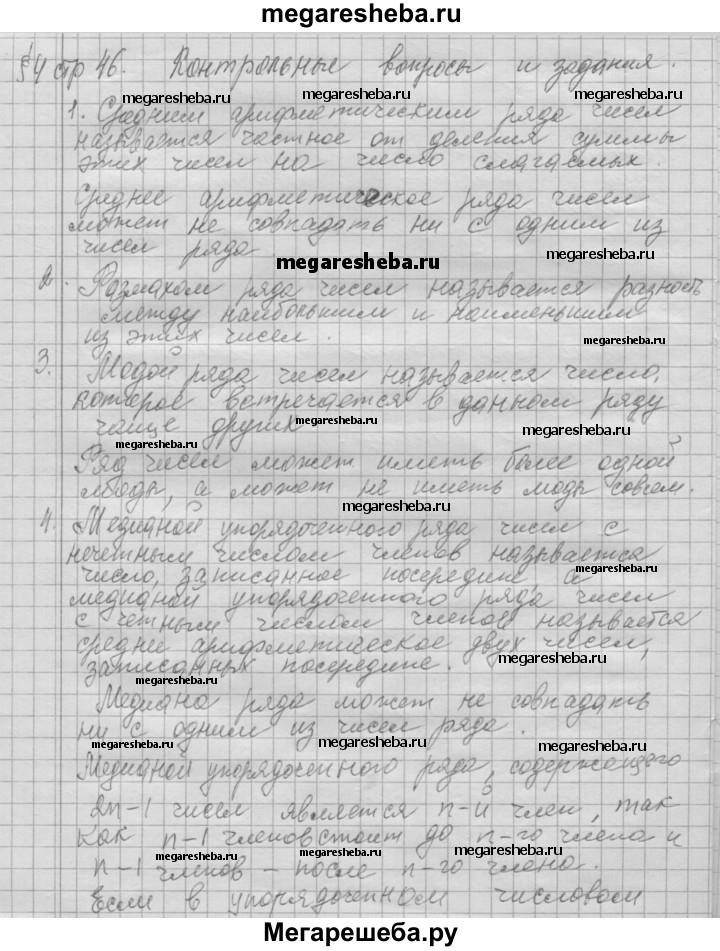 megaresheba.ru
§4 стр 46. Контрольные вопросы и задания.
megaresheba.ru megaresheba.ru
1. Средним арифметическим ряда чисел
называется частное от деления суммы
этих чисел на число слагаемых.
Среднее арифметическое ряда чисел
может не совпадать ни с одним из
чисел ряда
megaresheba.ru
2. Размахом ряда чисел называется разность
между наибольшим и наименьшим
из этих чисел.
megaresheba.ru
3. Модой ряда чисел называется число,
которое встречается в данном ряду
чаще других.
megaresheba.ru megaresheba.ru
Ряд чисел может иметь более одной
моды, а может не иметь моды совсем.
megaresheba.ru
4. Медианой упорядоченного ряда чисел с
нечетным числом членов называется
число, записанное посередине, а
megaresheba.ru
медианой упорядоченного ряда чисел
с четным числом членов называется
среднее арифметическое двух чисел,
записанных посередине.
megaresheba.ru
megaresheba.ru
Медиана ряда может не совпадать
ни с одним из чисел ряда.
megaresheba.ru megaresheba.ru megaresheba.ru
Медианой упорядоченного ряда, содержащего
2n-1 чисел является n-й член, так
как n-1 членов стоит до n-го члена и
megaresheba.ru megaresheba.ru
n-1 членов - после n-го члена.
Если в упорядоченном числовом
Мегарешеба.ру